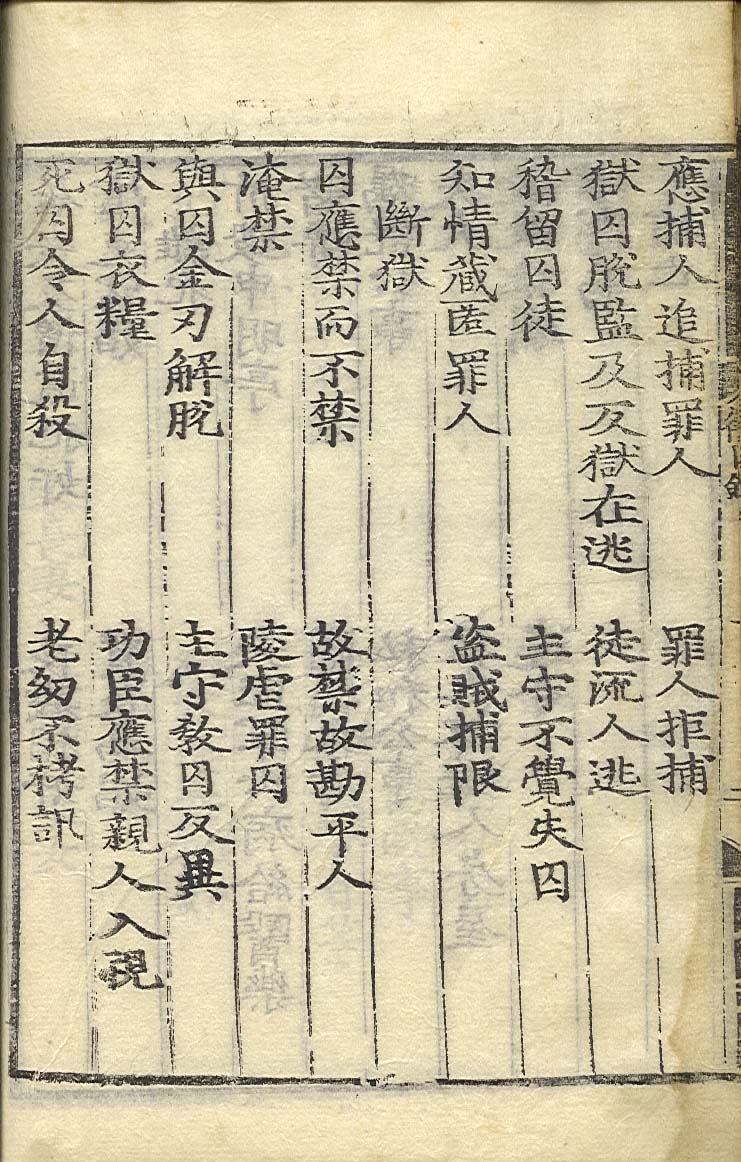 應捕人追捕罪人 罪人拒捕
獄囚脫監及反獄在逃 徒流人逃
稽留囚徒 主守不覺失囚
知情藏匿罪人 盜賊捕限
斷獄
囚應禁而不禁 故禁故勘平人
淹禁 陵虐罪囚
與囚金刃解脫 主守教囚反異
獄囚衣糧 功臣應禁親人入視
死囚令人自殺 老幼不拷訊